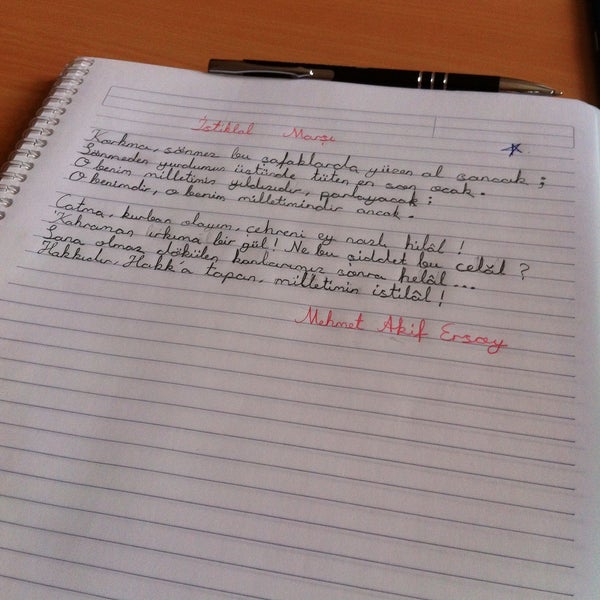 İstiklal Marşı
Korkma, sönmez bu şafaklarda yüzen al sancak ;
Sönmeden yurdumun üstünde tüten en son ocak.
O benim milletimin yıldızıdır, parlayacak ;
O benimdir, o benim milletimindir ancak.
Çatma, kurban olayım, çehreni ey nazlı hilâl !
Kahraman ırkıma bir gül! Ne bu şiddet bu celâl ?
Sana olmaz dökülen kanlarımız sonra helâl...
Hakkıdır, Hakk'a tapan, milletimin istilâl !
Mehmet Akif Ersoy